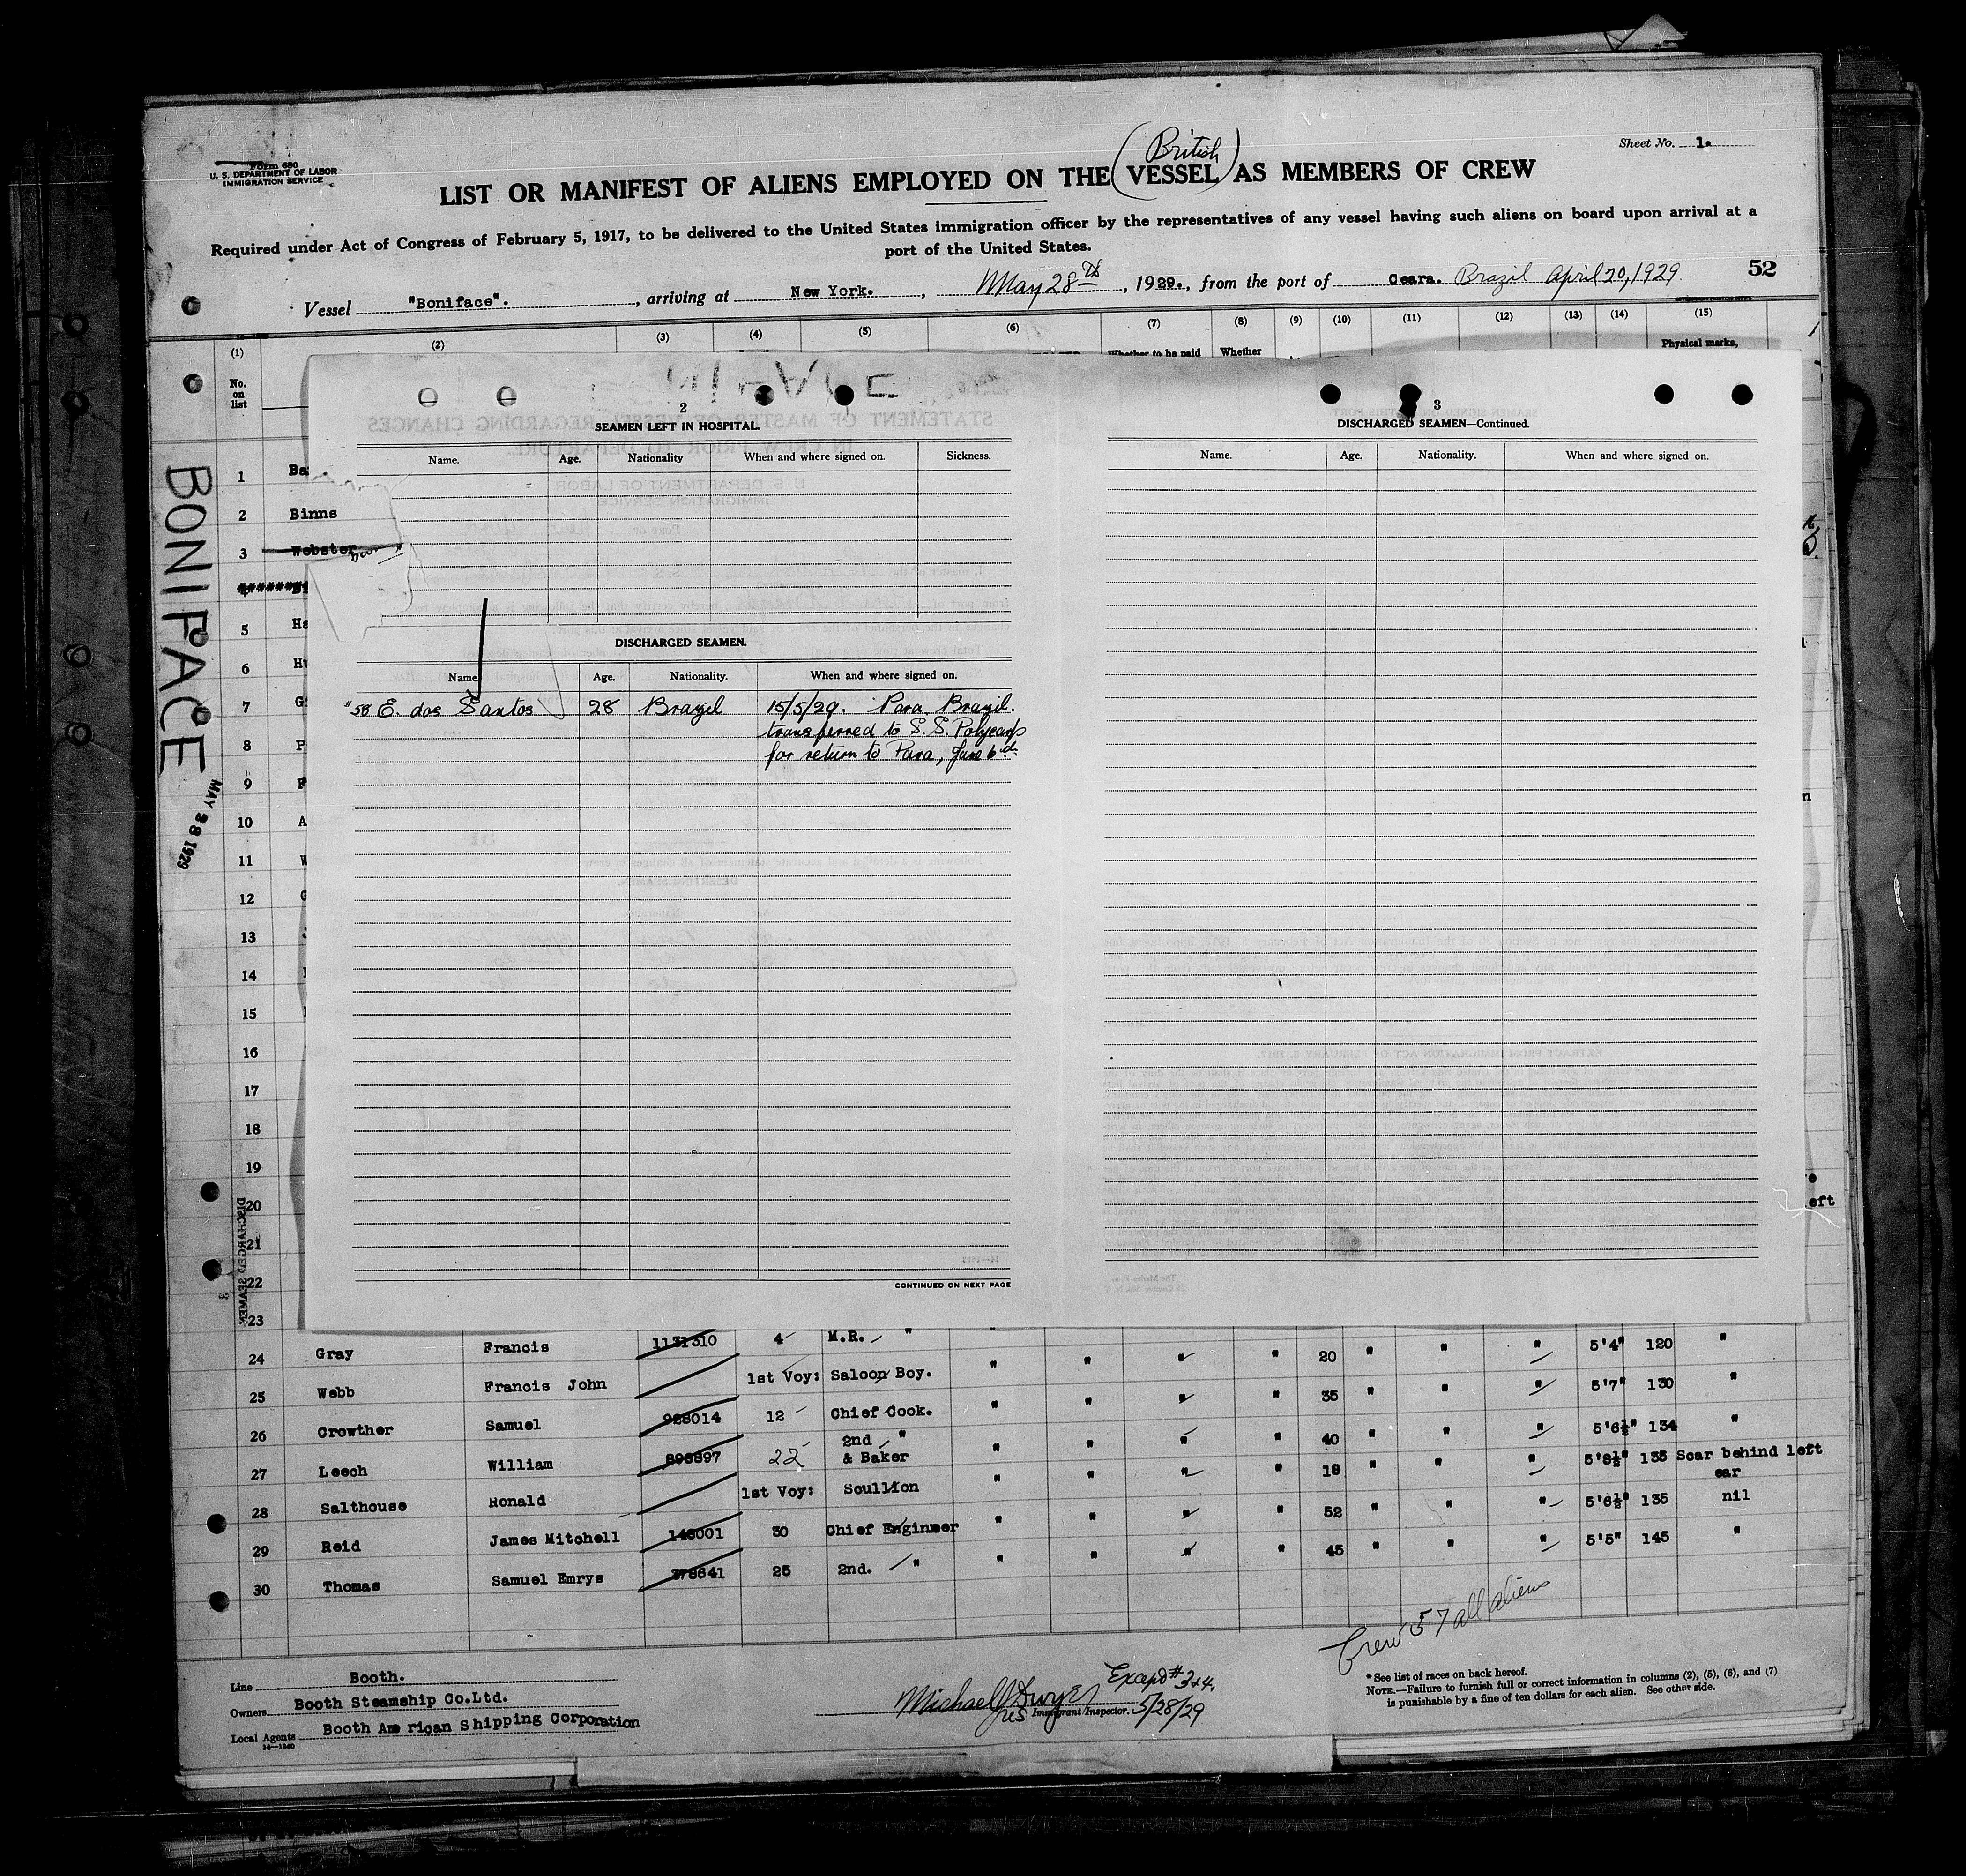 Form 680
U. S. DEPARTMENT OF LABOR
IMMIGRATION SERVICE
Sheet No. 1.
(British)
LIST OR MANIFEST OF ALIENS EMPLOYED ON THE VESSEL AS MEMBERS OF CREW
Required under Act of Congress of February 5, 1917, to be delivered to the United States immigration officer by the representatives of any vessel having such aliens on board upon arrival at a
port of the United States.
52
Vessel "Boniface". , arriving at New York. , May 28th , 1929., from the port of Ceara. Brazil April 20, 1929
(1) (2) (3) (4) (5) (6) (7) (8) (9) (10) (11) (12) (13) (14) (15)
Whether to be paid Whether Physical marks,
No. on list
BONIFACE
MAY 28 1929
DISCHARGED SEAMEN
2
SEAMEN LEFT IN HOSPITAL.
Name. Age. Nationality When and where signed on. Sickness.
DISCHARGED SEAMEN.
Name. Age. Nationality. When and where signed on.
"58 E. dos Santos 28 Brazil 15/5/29. Para Brazil.
transferred to S. S. Polycarp
for return to Para, June 6th.
CONTINUED ON NEXT PAGE
3
DISCHARGED SEAMEN—Continued.
Name. Age. Nationality. When and where signed on.
1
2 Binns
3 Webster
4
5
6
7
8
9
10
11
12
13
14
15
16
17
18
19
20 eft
21
22
23
24 Gray Francis 1131310 4 M.R. " " " " " 20 " " " 5'4" 120 "
25 Webb Francis John 1st Voy: Saloon Boy. " " " 35 " " " 5'7" 130 "
26 Crowther Samuel 928014 12 Chief Cook. " " " 40 " " " 5'6½" 134 "
27 Leech William 898897 22 2nd " & Baker " " " 18 " " " 5'8½" 135 Scar behind left ear
28 Salthouse Ronald 1st Voy: Scullion " " " 52 " " " 5'6½" 135 nil
29 Reid James Mitchell 148001 30 Chief Engineer " " " 45 " " " 5'5" 145 "
30 Thomas Samuel Emrys 378641 25 2nd. " " " "
Crew 57 all aliens
Line Booth.
Owners Booth Steamship Co.Ltd.
Local Agents Booth American Shipping Corporation
14—1240
Except # 3+4.
Michael J Dwyer
US Immigrant Inspector. 5/28/29
* See list of races on back hereof.
NOTE.—Failure to furnish full or correct information in columns (2), (5), (6), and (7)
is punishable by a fine of ten dollars for each alien. See other side.